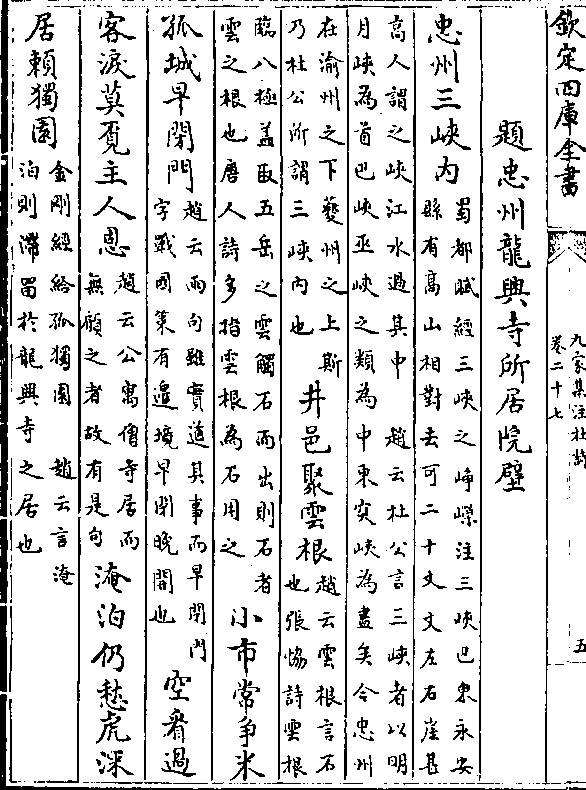 欽定四庫全書
九家集注杜詩
卷二十七
五
題忠州龍興寺所居院壁
忠州三峽内
蜀都賦經三峽之崢嶸注三峽巴東永安
縣有高山相對去可二十丈丈左右崖甚
高人謂之峽江水過其中 趙云杜公言三峽者以明
月峽為首巴峽巫峽之類為中東突峽為盡矣今忠州
在渝州之下夔州之上斯
乃杜公所謂三峽内也
井邑聚雲根
趙云雲根言石
也張協詩雲根
臨八極盖取五岳之雲觸石而出則石者
雲之根也唐人詩多指雲根為石用之
小市常爭米
孤城早閉門
趙云兩句雖實道其事而早閉門
字戰國策有邊境早閉晚開也
空看過
客淚莫覓主人恩
趙云公寓僧寺居而
無顧之者故有是句
淹泊仍愁虎深
居賴獨園
金剛經給孤獨園 趙云言淹
泊則滯留於龍興寺之居也